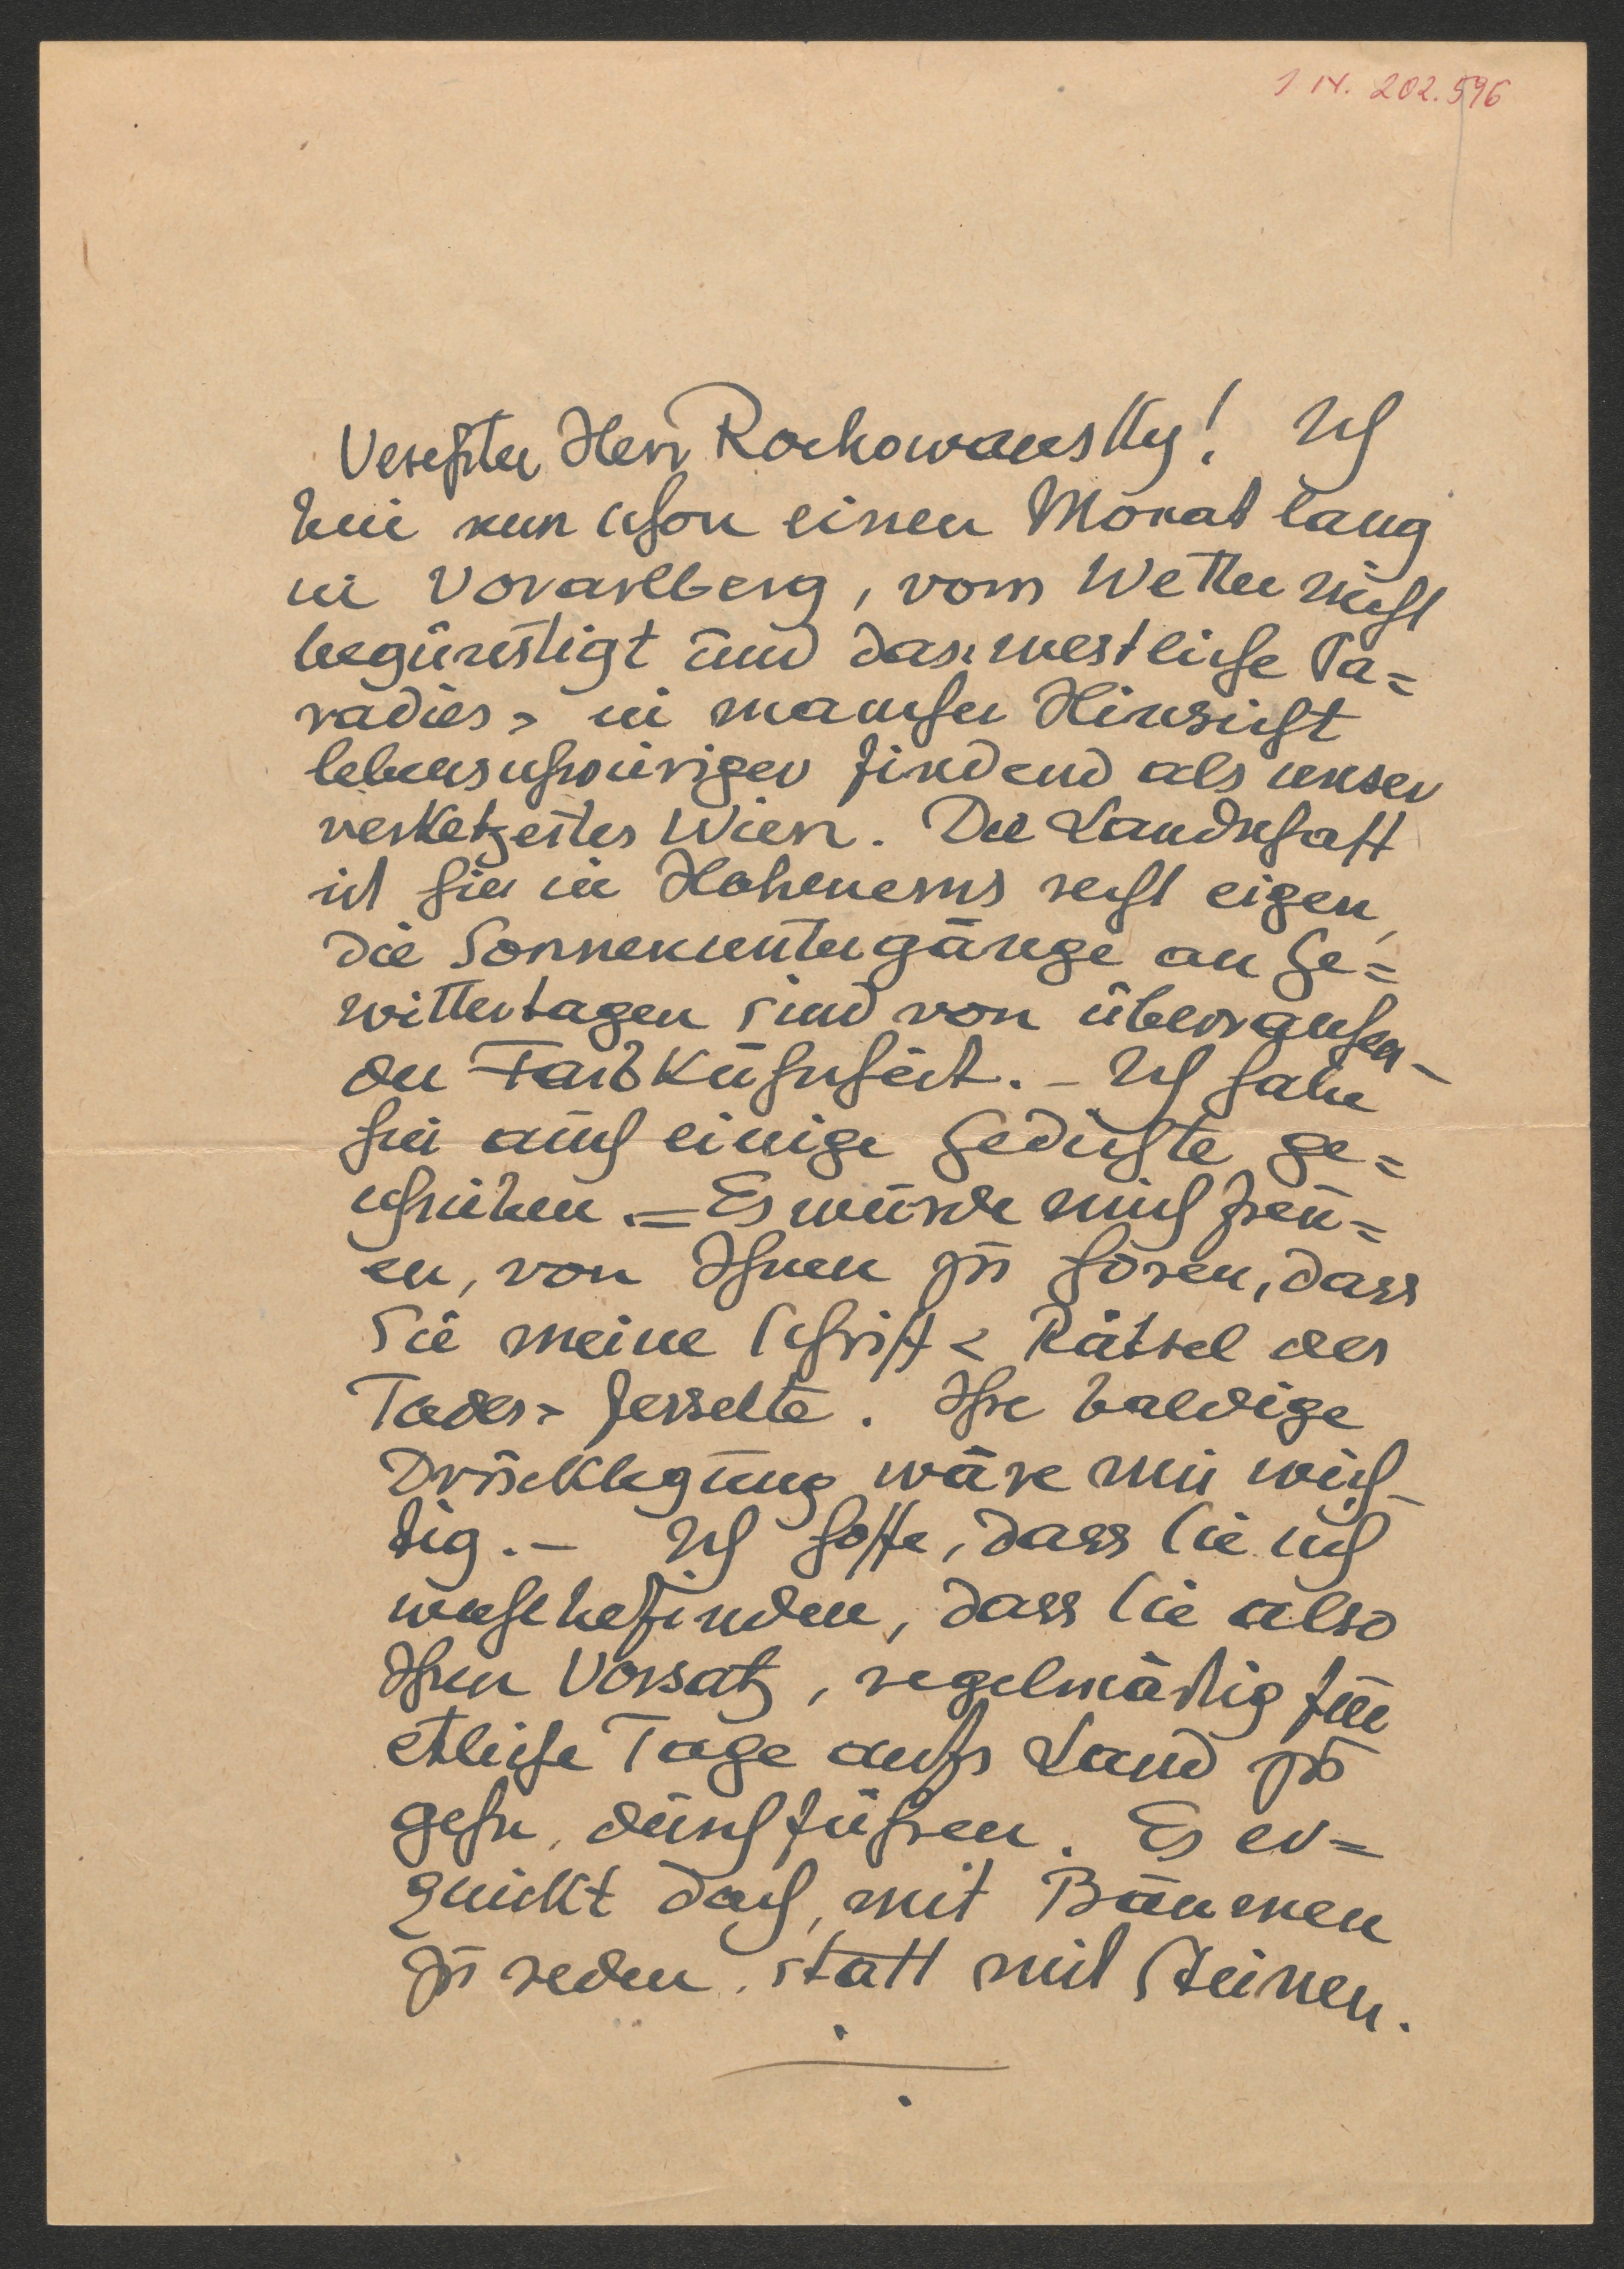 I N. 202.596
Verehrter Herr Rochowansky! Ich
bin nun schon einen Monat lang
in Vorarlberg, vom Wetter nicht
begünstigt und das westliche Pa=
radies > in mancher Hinsicht
lebensschwieriger findend als unser
verketzertes Wien. Die Landschaft
ist hier in Hohenems recht eigen,
die Sonnenuntergänge an Ge=
wittertagen sind von überraschen-
der Farbkühnheit. – Ich habe
hier auch einige Gedichte ge=
schrieben. = Es würde mich freu=
en, von Ihnen zu hören, dass
Sie meine Schrift < Rätsel des
Todes > fesselte. Ihre baldige
Drucklegung wäre mir wich-
tig. – Ich hoffe, dass Sie sich
wohlbefinden, dass Sie also
Ihren Vorsatz, regelmäßig für
etliche Tage aufs Land zu
gehn, durchführen. Es er=
quickt doch, mit Bäumen
zu reden, statt mit Steinen.